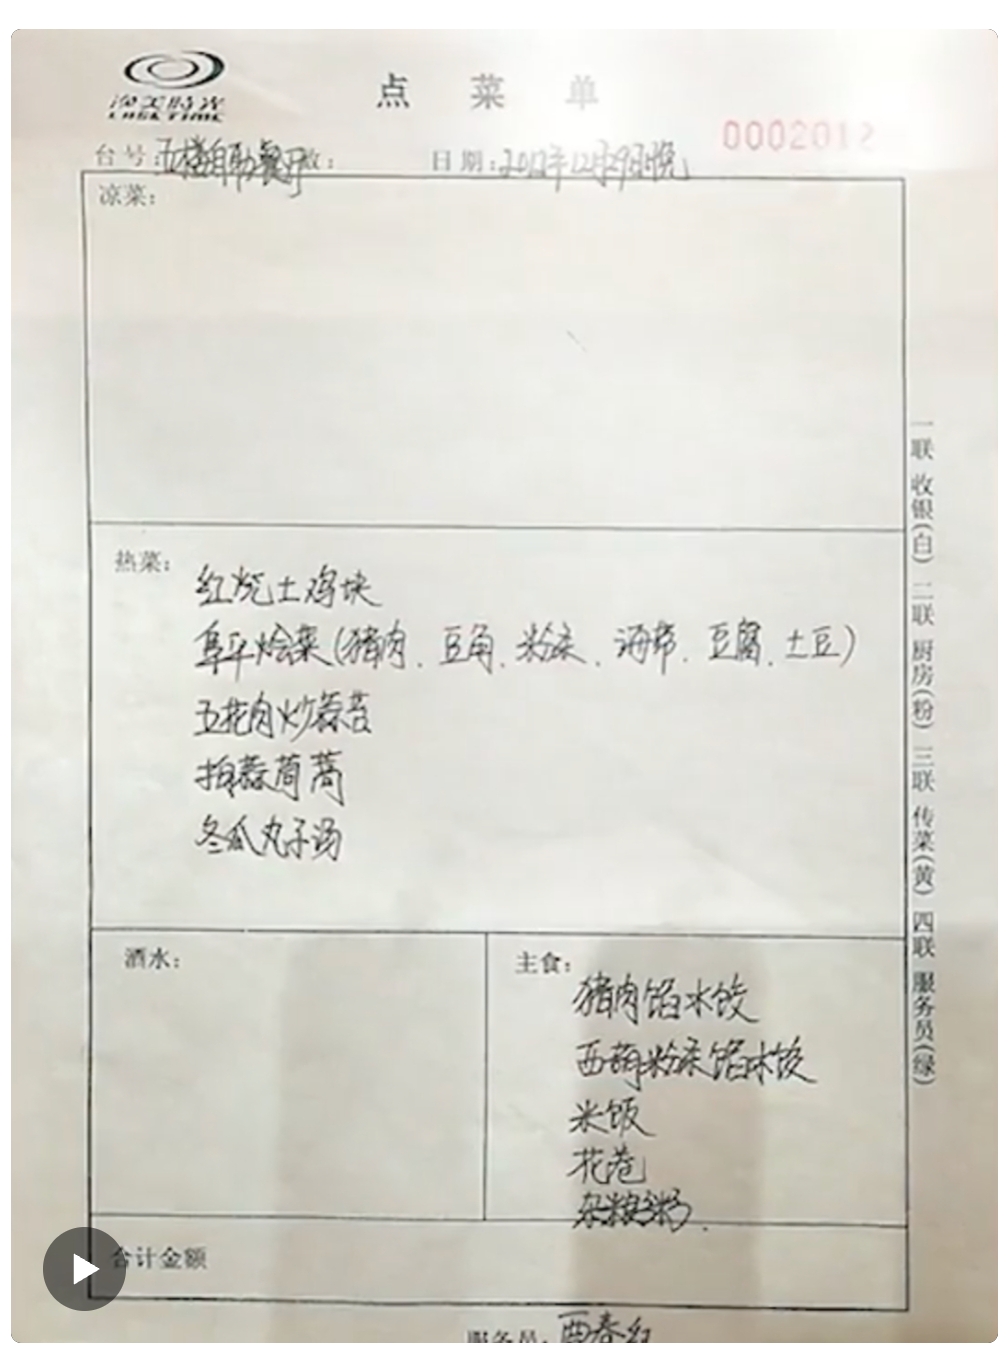 淘美時光
LOSE TIME
点菜单
0002012
台号：五楼自助餐厅 数： 日期：2012年12月29日晚
凉菜：
热菜：
红烧土鸡块
阜平烩菜(猪肉、豆角、粉条、海带、豆腐、土豆)
五花肉炒蒜苔
拍蒜茼蒿
冬瓜丸子汤
酒水：
主食：
猪肉馅水饺
西葫粉条馅水饺
米饭
花卷
杂粮粥.
合计金额
服务员：
一联 收银(白) 二联 厨房(粉) 三联 传菜(黄) 四联 服务员(绿)